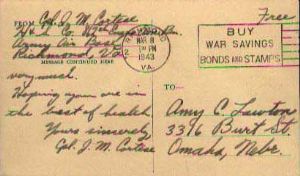 Free
FROM Cpl. J. M. Cortese
Army Air Base
Richmond, Va.
MESSAGE CONTINUED HERE
MAR 8
PM
1943
VA.
BUY
WAR SAVINGS
BONDS AND STAMPS
very much.
Hoping you are in
the best of health
Yours sincerely,
Cpl. J. M. Cortese
TO—
Amy C. Lawton
3316 Burt St.
Omaha, Nebr.